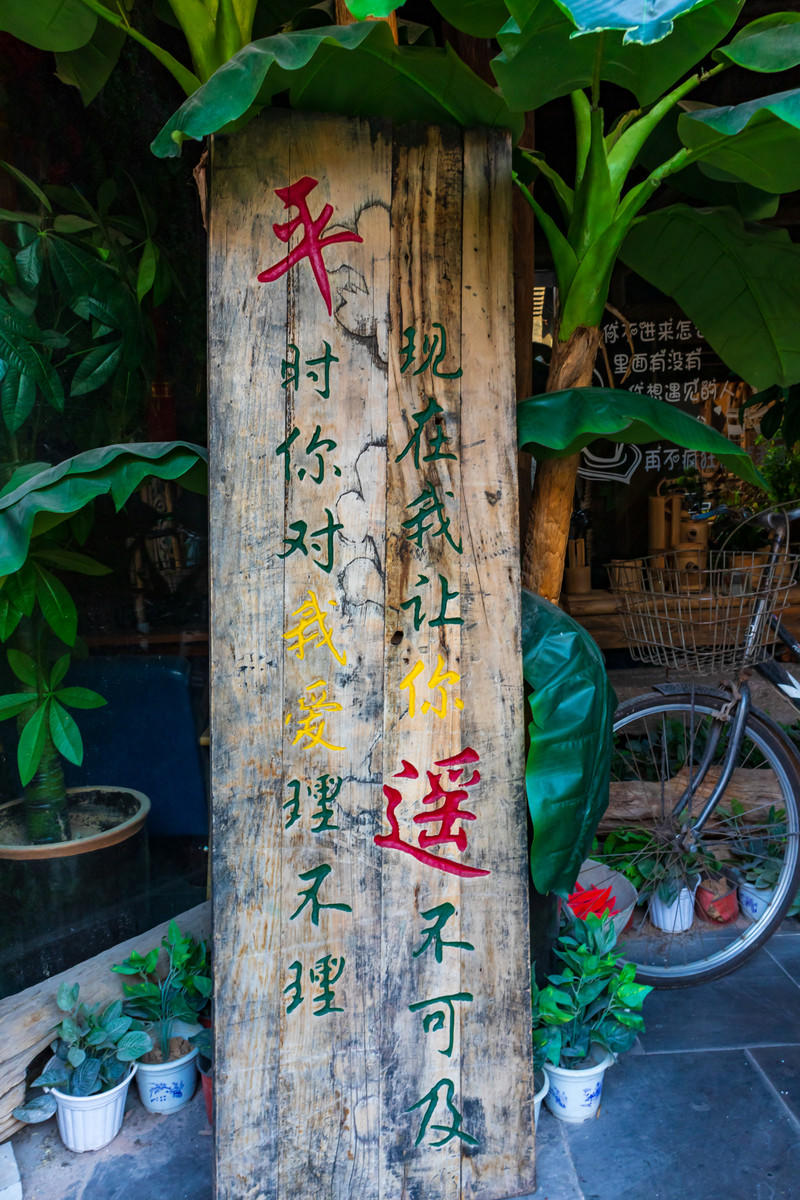 平时你对我爱理不理
现在我让你遥不可及
你不进来怎
里面有没有
你想遇见的人
再不疯